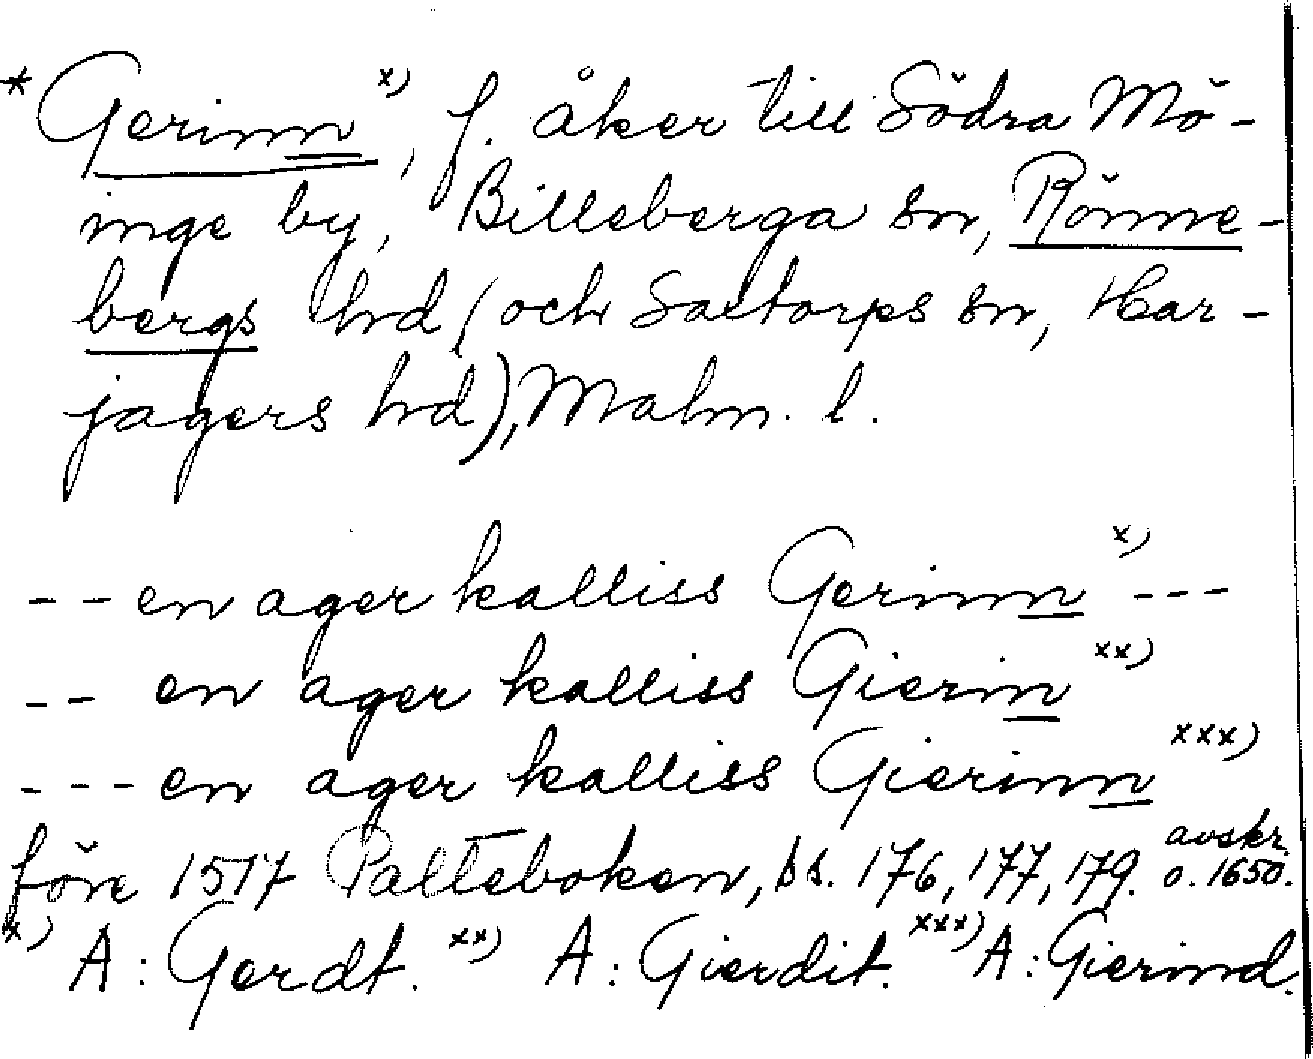 * Gerinn x), f. åker till Södra Mö-
inge by, Billeberga sn, Rönne-
bergs hrd (och Saxtorps sn, Har-
jagers hrd), Malm. l.
-- en ager kalliss Gerinn x) ---
-- en ager kalliss Gierin xx)
--- en ager kalliss Gierinn xxx)
före 1517 Palteboken, bs. 176, 177, 179. avskr. o. 1650.
x) A: Gerdt. xx) A: Gierdit. xxx) A: Gierind.